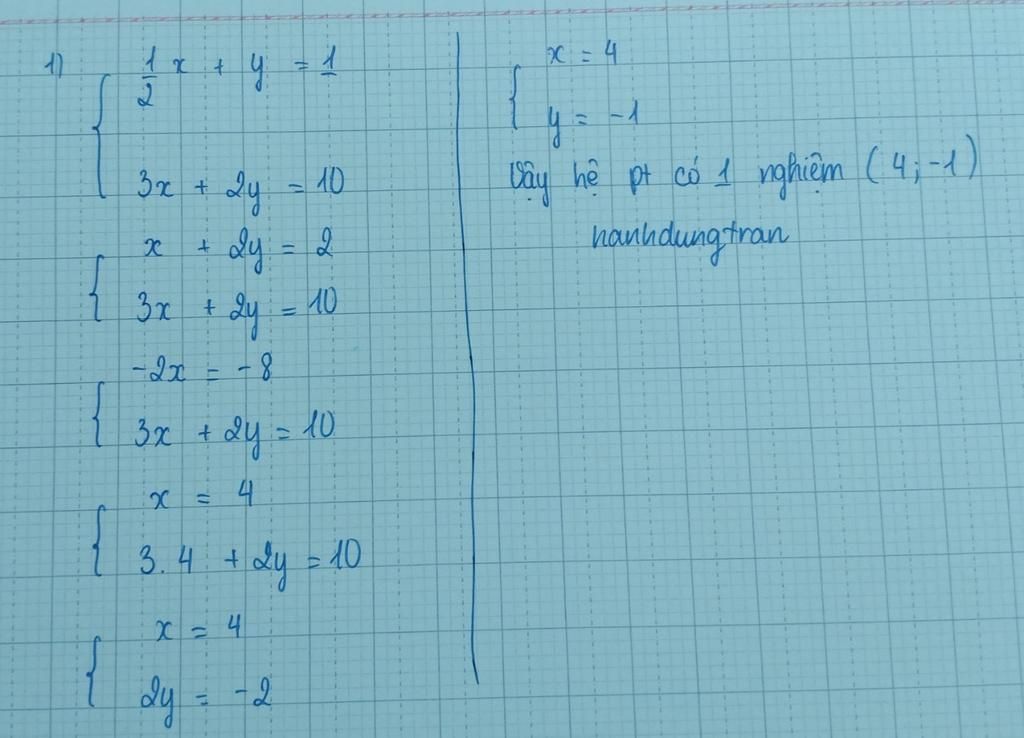 1) { 1/2 x + y = 1
3x + 2y = 10
{ x + 2y = 2
3x + 2y = 10
{ -2x = -8
3x + 2y = 10
{ x = 4
3.4 + 2y = 10
{ x = 4
2y = -2
{ x = 4
y = -1
Vậy hệ pt có 1 nghiệm (4; -1)
hanhdungtran